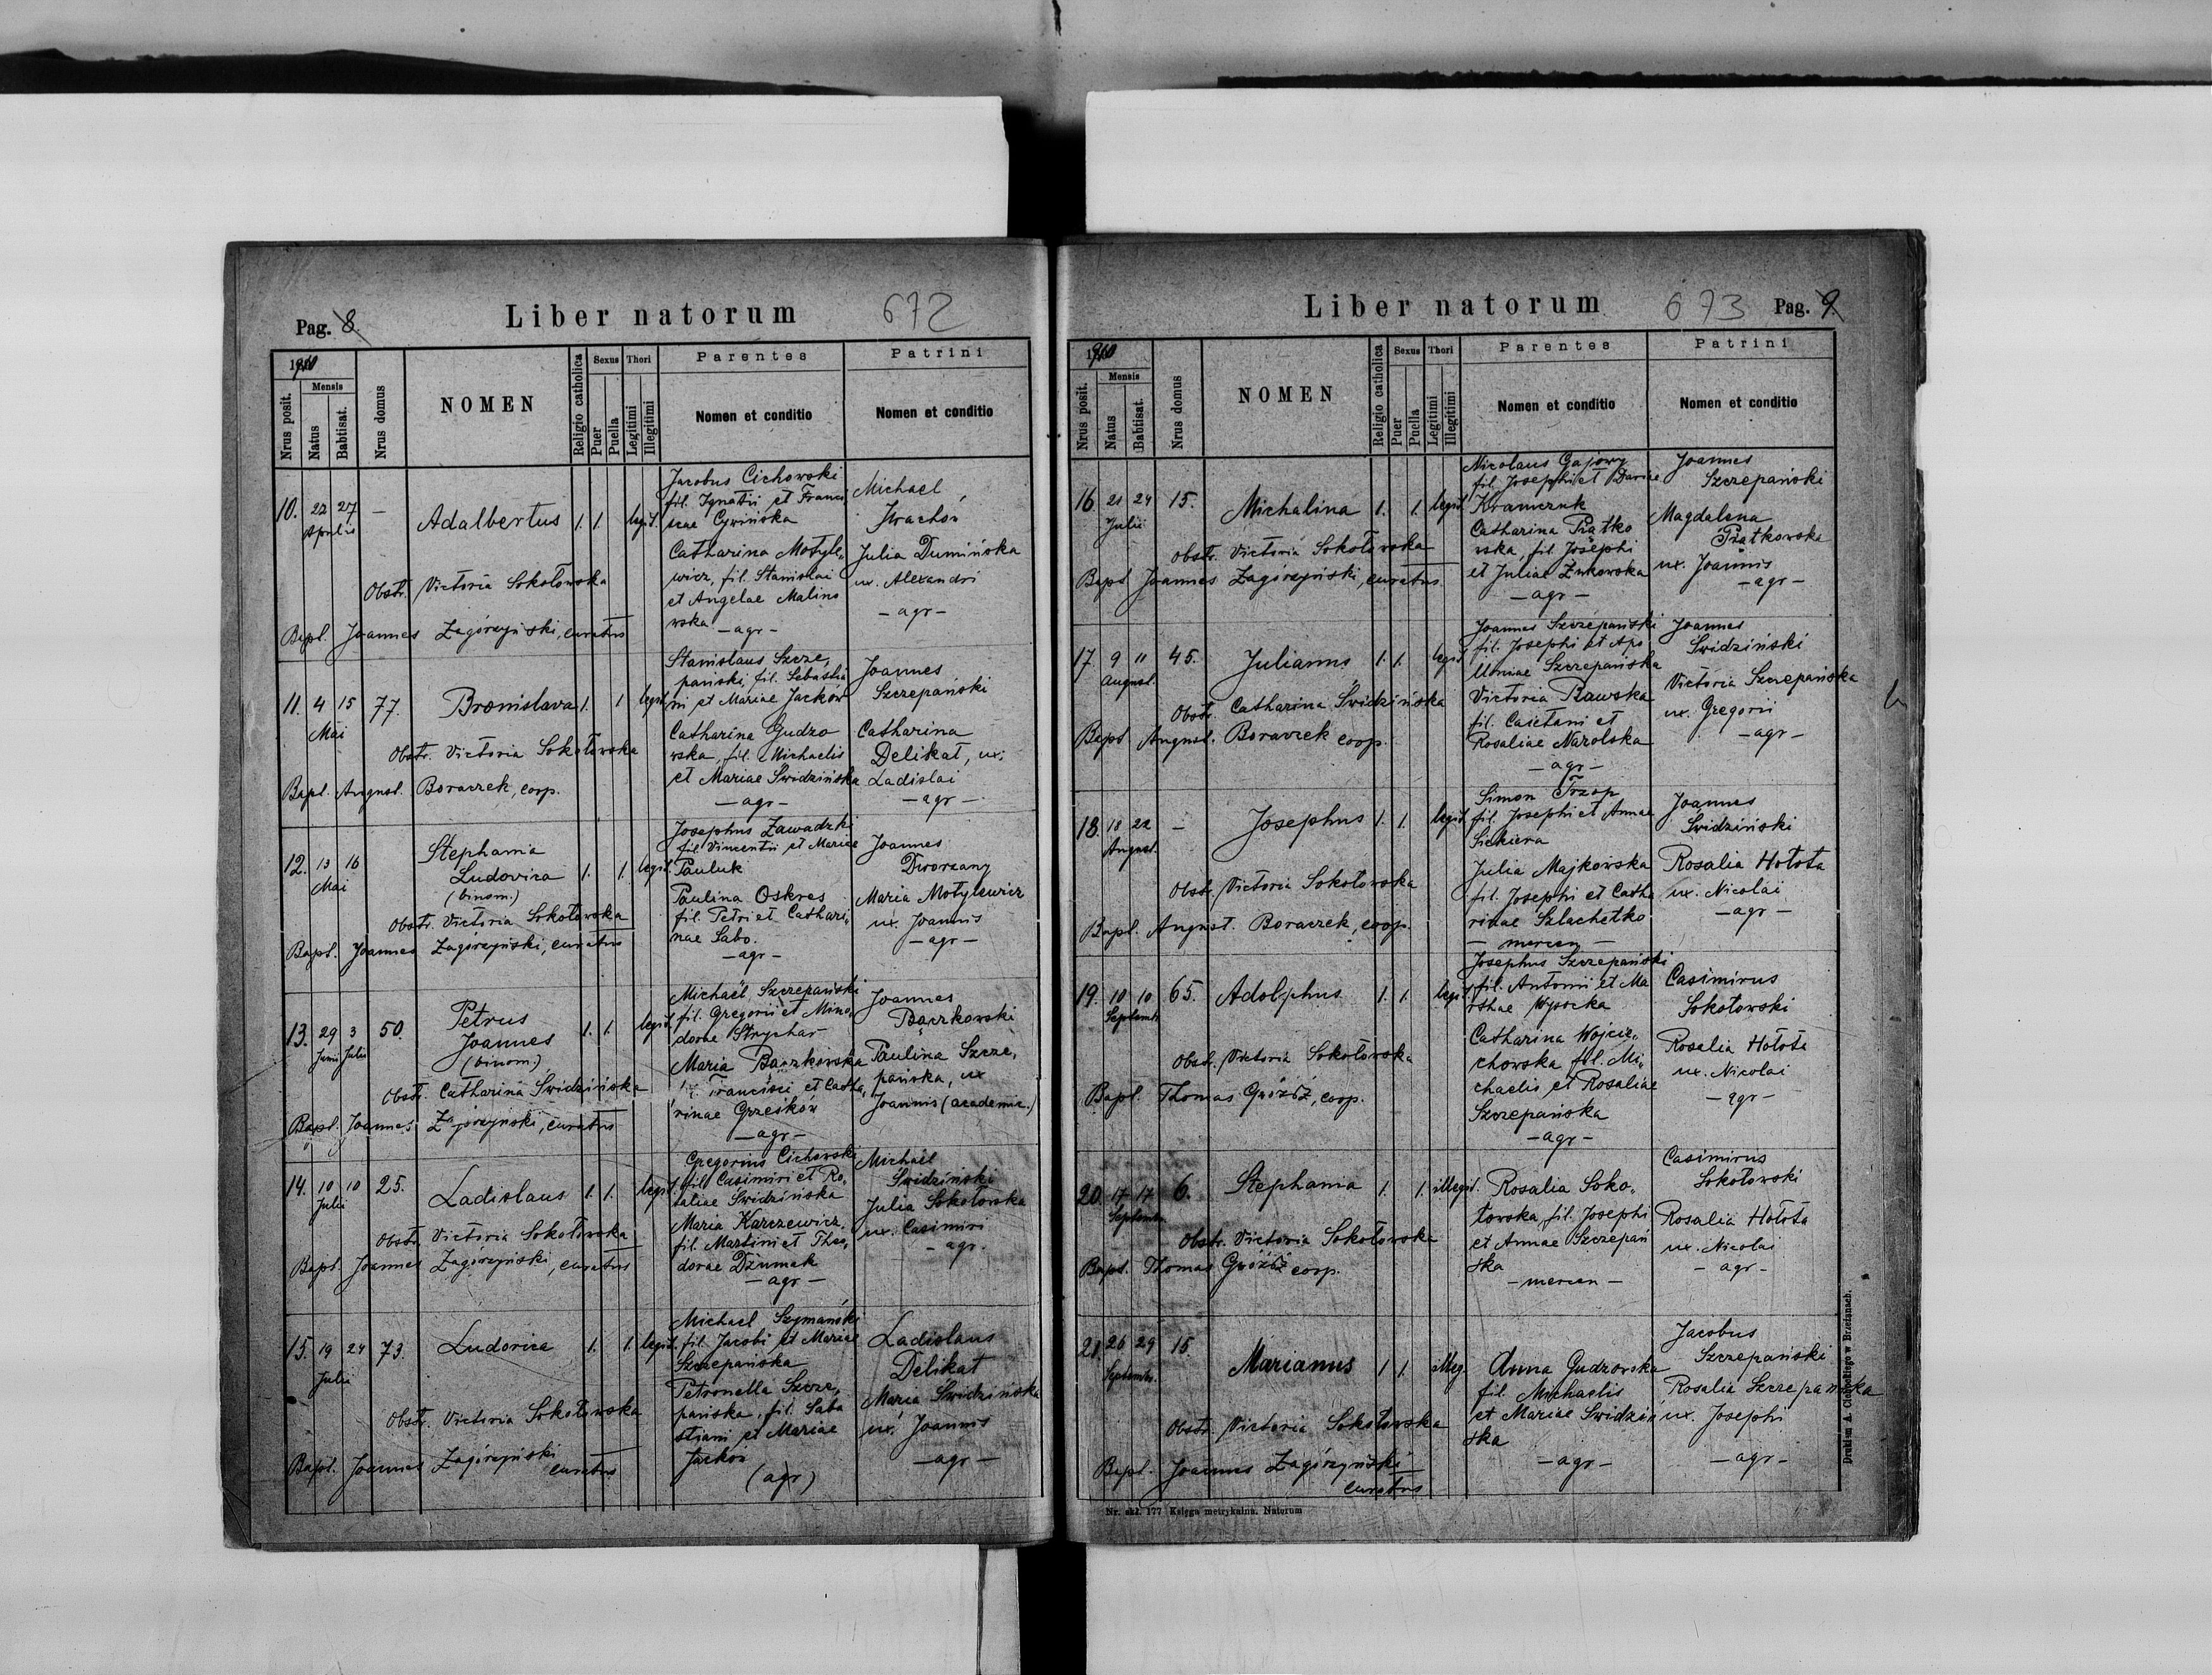 Pag. 8.
Liber natorum
672
1910
Nrus posit.
Mensis
Natus
Babtisat.
Nrus domus
NOMEN
Religio catholica
Sexus
Puer
Puella
Thori
Legitimi
Illegitimi
Parentes
Nomen et conditio
Patrini
Nomen et conditio
10. 22 27 — Adalbertus 1. 1. legit.
Aprilis
Jacobus Cichowski
fil. Ignatii et Franci,
scae Cywińska
Catharina Motyle„
wicz, fil. Stanislai
et Angelae Malino
wska
— agr —
Michael
Julia Dumińska
ux. Alexandri
— agr —
Obstr. Victoria Sokołowska
Bapt. Joannes Zagórzyński, curatus
11. 4 15 77. Bronislava 1. 1 legit.
Mai
Stanislaus Szcze,
pański, fil. Sebastia
ni et Mariae Jacków
Catharina Gudzo
wska, fil. Michaelis
et Mariae Świdzińska
— agr —
Joannes
Szczepański
Catharina
Delikat, ux.
Ladislai
— agr —
Obstr. Victoria Sokołowska
Bapt. August. Boraczek, coop.
12. 13 16 Stephania
Mai
Ludovica 1. 1. legit.
(binom.)
Josephus Zawadzki
fil. Vincentii et Mariae
Pauluk
Paulina Oskres
fil. Petri et Cathari„
nae Sabo.
— agr —
Joannes
Dworzany
Maria Motylewicz
ux. Joannis
— agr —
Obstr. Victoria Sokołowska
Bapt. Joannes Zagórzyński, curatus
13. 29 3 50. Petrus
Junii Julii
Joannes 1. 1. legit.
(binom.)
Michaël Szczepański
fil. Gregorii et Mino,
dorae Strychar
Maria Baczkowska
Francisci et Catha,
rinae Grześków
— agr —
Joannes
Baczkowski
Paulina Szcze,
pańska, ux
Joannis (academic.)
Obstr. Catharina Świdzińska
Bapt. Joannes Zagórzyński, curatus
14. 10 10 25. Ladislaus 1. 1. legit.
Julii
Gregorius Cichowski
fil. Casimiri et Ro,
saliae Świdzińska
Maria Karczewicz
fil. Martini et Theo,
dorae Dżumak
— agr —
Michaël
Świdziński
Julia Sokołowska
ux. Casimiri
— agr.
Obstr. Victoria Sokołowska
Bapt. Joannes Zagórzyński, curatus
15. 19 24 73. Ludovica 1. 1. legit.
Julii
Michael Szymański
fil. Jacobi et Mariae
Szczepańska
Petronella Szcze,
pańska, fil. Seba
stiani et Mariae
Jacków
(agr)
Ladislaus
Delikat
Maria Świdzińska
ux. Joannis
— agr —
Obstr. Victoria Sokołowska
Bapt. Joannes Zagórzyński
curatus
Liber natorum
673
Pag. 9.
1910
Nrus posit.
Mensis
Natus
Babtisat.
Nrus domus
NOMEN
Religio catholica
Sexus
Puer
Puella
Thori
Legitimi
Illegitimi
Parentes
Nomen et conditio
Patrini
Nomen et conditio
16. 21 24 15. Michalina 1. 1. legit.
Julii
Nicolaus Gajowy
fil. Josephi et Dariae
Kramczuk
Catharina Piątko
wska, fil. Josephi
et Juliae Żukowska
— agr —
Joannes
Szczepański
Magdalena
Piatkowska
ux. Joannis
— agr —
Obstr. Victoria Sokołowska
Bapt. Joannes Zagórzyński, curatus.
17. 9 11 45. Julianus 1. 1. legit.
August.
Joannes Szczepański
fil. Josephi et Apo
lloniae Szczepańska
Victoria Rawska
fil. Caietani et
Rosaliae Narolska
— agr —
Joannes
Świdziński
Victoria Szczepańska
ux. Gregorii
— agr —
Obstr. Catharina Świdzińska
Bapt. August. Boraczek coop.
18. 18 22 — Josephus 1. 1. legit.
August.
Simon Trzop
fil. Josephi et Annae
Siekiera
Julia Majkowska
fil. Josephi et Catha
rinae Szlachetko
— mercen —
Joannes
Świdziński
Rosalia Hołota
ux. Nicolai
— agr —
Obstr. Victoria Sokołowska
Bapt. August. Boraczek, coop.
19. 10 10 65. Adolphus 1. 1. legit.
Septembr.
Josephus Szczepański
fil. Antonii et Ma
rthae Wysocka
Catharina Wojcie„
chowska fil. Mi„
chaelis et Rosaliae
Szczepańska
— agr —
Casimirus
Sokołowski
Rosalia Hołota
ux. Nicolai
— agr —
Obstr. Victoria Sokołowska
Bapt. Thomas Gwóźdź, coop.
20. 17 17 6. Stephania 1. 1. illegit.
Septembr.
Rosalia Soko„
łowska, fil. Josephi
et Annae Szczepań
ska
— mercen —
Casimirus
Sokołowski
Rosalia Hołota
ux. Nicolai
— agr —
Obstr. Victoria Sokołowska
Bapt. Thomas Gwóźdź coop.
21. 26 29 15. Marianus 1. 1. illeg.
Septembr.
Anna Gudzowska
fil. Michaelis
et Mariae Świdziń
ska
— agr —
Jacobus
Szczepański
Rosalia Szczepańska
ux. Josephi
— agr —
Obstr. Victoria Sokołowska
Bapt. Joannes Zagórzyński
curatus
Nr. skł. 177 Księga metrykalna. Natorum
Drukiem A. Cichockiego w Brzeżanach.